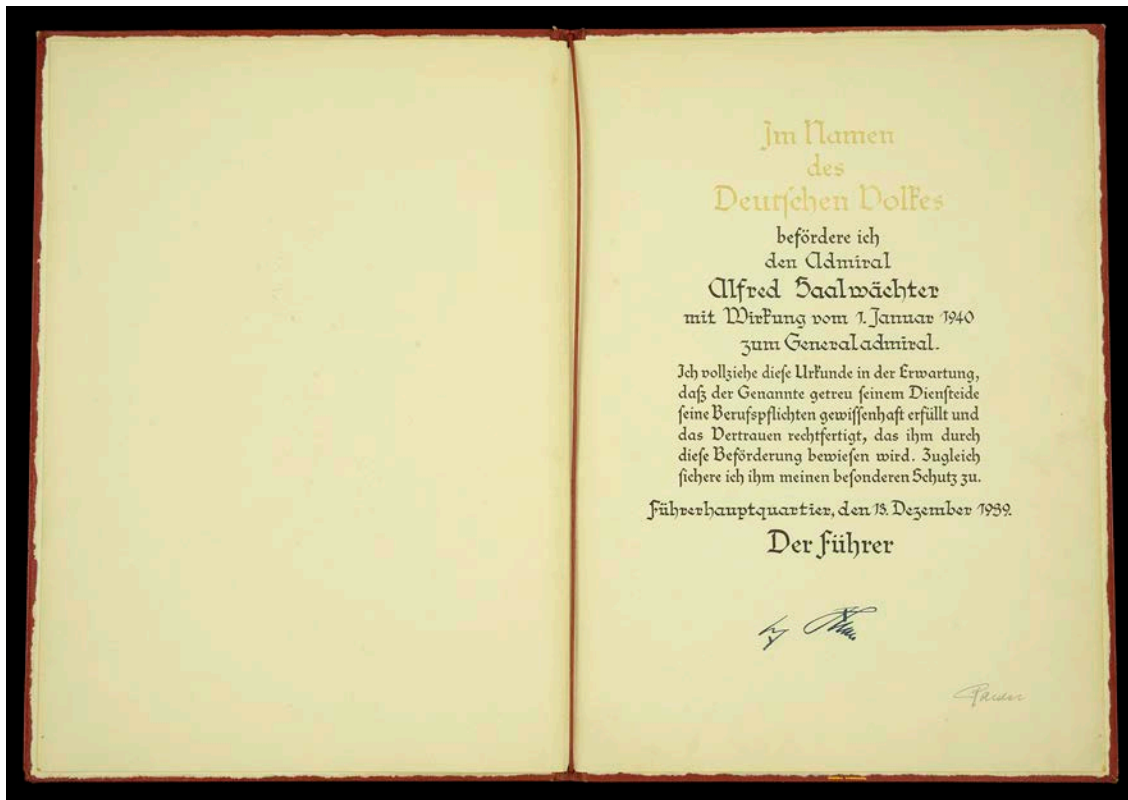 Im Namen
des
Deutſchen Volkes
befördere ich
den Admiral
Alfred Saalwächter
mit Wirkung vom 1. Januar 1940
zum Generaladmiral.
Ich vollziehe dieſe Urkunde in der Erwartung,
daß der Genannte getreu ſeinem Dienſteide
ſeine Berufspflichten gewiſſenhaft erfüllt und
das Vertrauen rechtfertigt, das ihm durch
dieſe Beförderung bewieſen wird. Zugleich
ſichere ich ihm meinen beſonderen Schutz zu.
Führerhauptquartier, den 18. Dezember 1939.
Der Führer